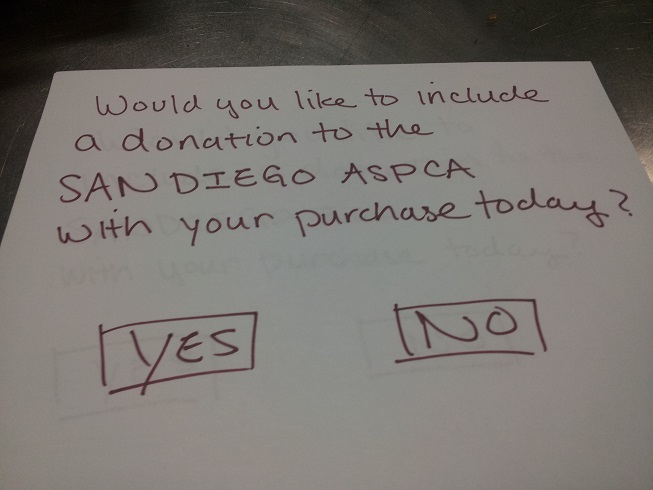 Would you like to include
a donation to the
SAN DIEGO ASPCA
with your purchase today?
YES NO